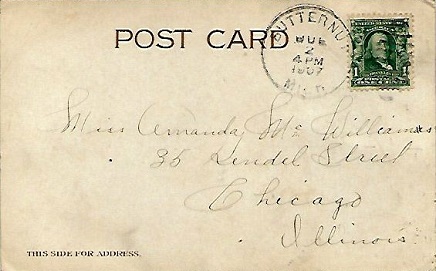 POST CARD
BUTTERNUT
JUL
2
4 PM
1907
MICH
1
ONE CENT
Miss Amanda Mc Williams
35 Lendel Street
Chicago
Illinois
THIS SIDE FOR ADDRESS.